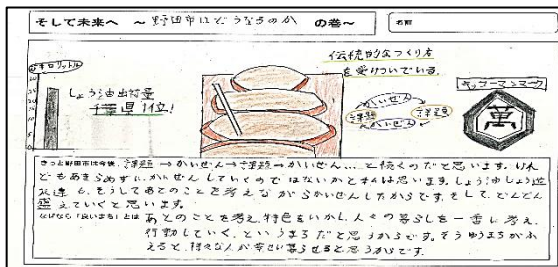 そして未来へ ～野田市はどうなるのか の巻～
名前
伝統的なつくり方
を受けついでいる。
しょう油出荷量
千葉県1位！
かいぜん
課題
かいぜん
キッコーマンマーク
萬
きっと野田市は今後、課題→かいぜん→課題→かいぜん…と続くのだと思います。けれ
どもあきらめずに、かいぜんしていくのではないかと私は思います。しょう油
そうしてあとのことを考えながらかいぜんしたからです。そして、どんどん
えていくと思います。
なぜなら「良いまち」とは あとのことを考え、特色をいかし、人々の暮らしを一番に考え、
行動していく、というまちだと思うからです。そうゆうまちがふ
えると、様々な人が幸せに暮らせると思うからです。